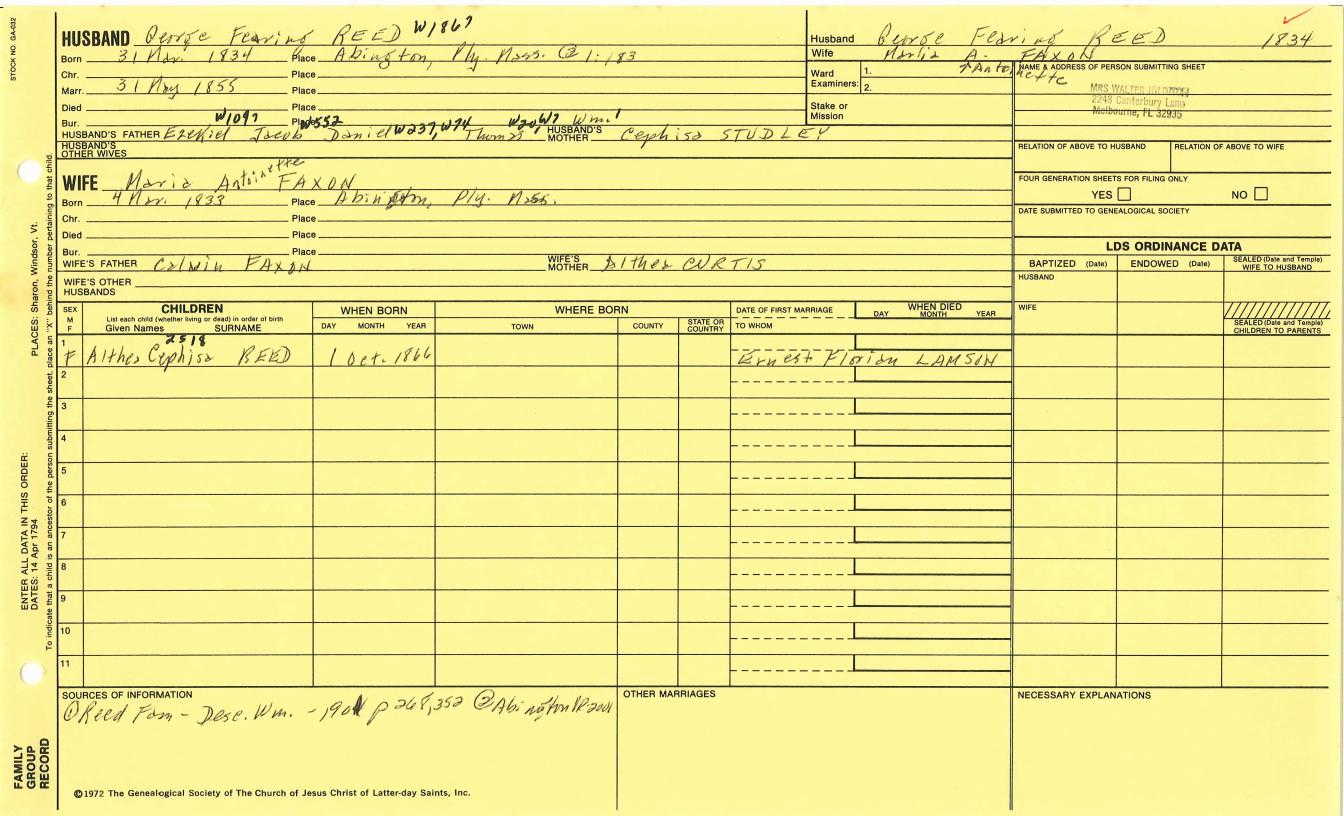 STOCK NO. GA-032
HUSBAND George Fearing REED W1867
Born 31 Mar. 1834 Place Abington, Ply. Mass. @ 1:183
Chr. Place
Marr. 31 May 1855 Place
Died Place
Bur. Place
W1097 W552 W237, W74 W20, W7 Wm.1
HUSBAND'S FATHER Ezekiel Jacob Daniel Thomas HUSBAND'S MOTHER Cephisa STUDLEY
HUSBAND'S OTHER WIVES
WIFE Maria Antoinette FAXON
Born 4 Mar. 1833 Place Abington, Ply. Mass.
Chr. Place
Died Place
Bur. Place
WIFE'S FATHER Calvin FAXON WIFE'S MOTHER Althea CURTIS
WIFE'S OTHER HUSBANDS
Husband George Fearing REED 1834
Wife Maria A. FAXON
Antoinette
Ward Examiners: 1.
2.
Stake or Mission
NAME & ADDRESS OF PERSON SUBMITTING SHEET
MRS WALTER
2243 Canterbury Lane
Melbourne, FL 32935
RELATION OF ABOVE TO HUSBAND RELATION OF ABOVE TO WIFE
FOUR GENERATION SHEETS FOR FILING ONLY
YES NO
DATE SUBMITTED TO GENEALOGICAL SOCIETY
LDS ORDINANCE DATA
BAPTIZED (Date) ENDOWED (Date) SEALED (Date and Temple) WIFE TO HUSBAND
HUSBAND
WIFE
SEALED (Date and Temple) CHILDREN TO PARENTS
SEX M F
CHILDREN
List each child (whether living or dead) in order of birth
Given Names SURNAME
WHEN BORN
DAY MONTH YEAR
WHERE BORN
TOWN COUNTY STATE OR COUNTRY
DATE OF FIRST MARRIAGE
TO WHOM
WHEN DIED
DAY MONTH YEAR
2518
1 F Althea Cephisa REED 1 Oct. 1866 Ernest Florian LAMSON
2
3
4
5
6
7
8
9
10
11
SOURCES OF INFORMATION
① Reed Fam - Desc. Wm. - 1901 p 268, 352 ② Abington VR 2001
OTHER MARRIAGES
NECESSARY EXPLANATIONS
©1972 The Genealogical Society of The Church of Jesus Christ of Latter-day Saints, Inc.
ENTER ALL DATA IN THIS ORDER:
DATES: 14 Apr 1794
PLACES: Sharon, Windsor, Vt.
To indicate that a child is an ancestor of the person submitting the sheet, place an "X" behind the number pertaining to that child.
FAMILY GROUP RECORD